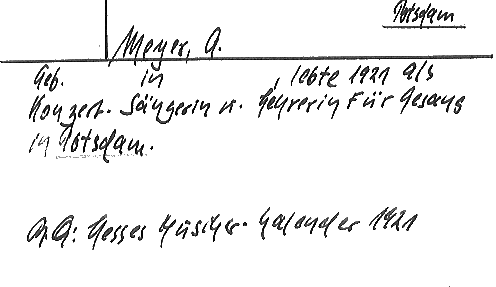 Potsdam
Meyer, A.
Geb. in , lebte 1921 als
Konzert-Sängerin u. Lehrerin für Gesang
in Potsdam.
Hesses Musiker-Kalender 1921